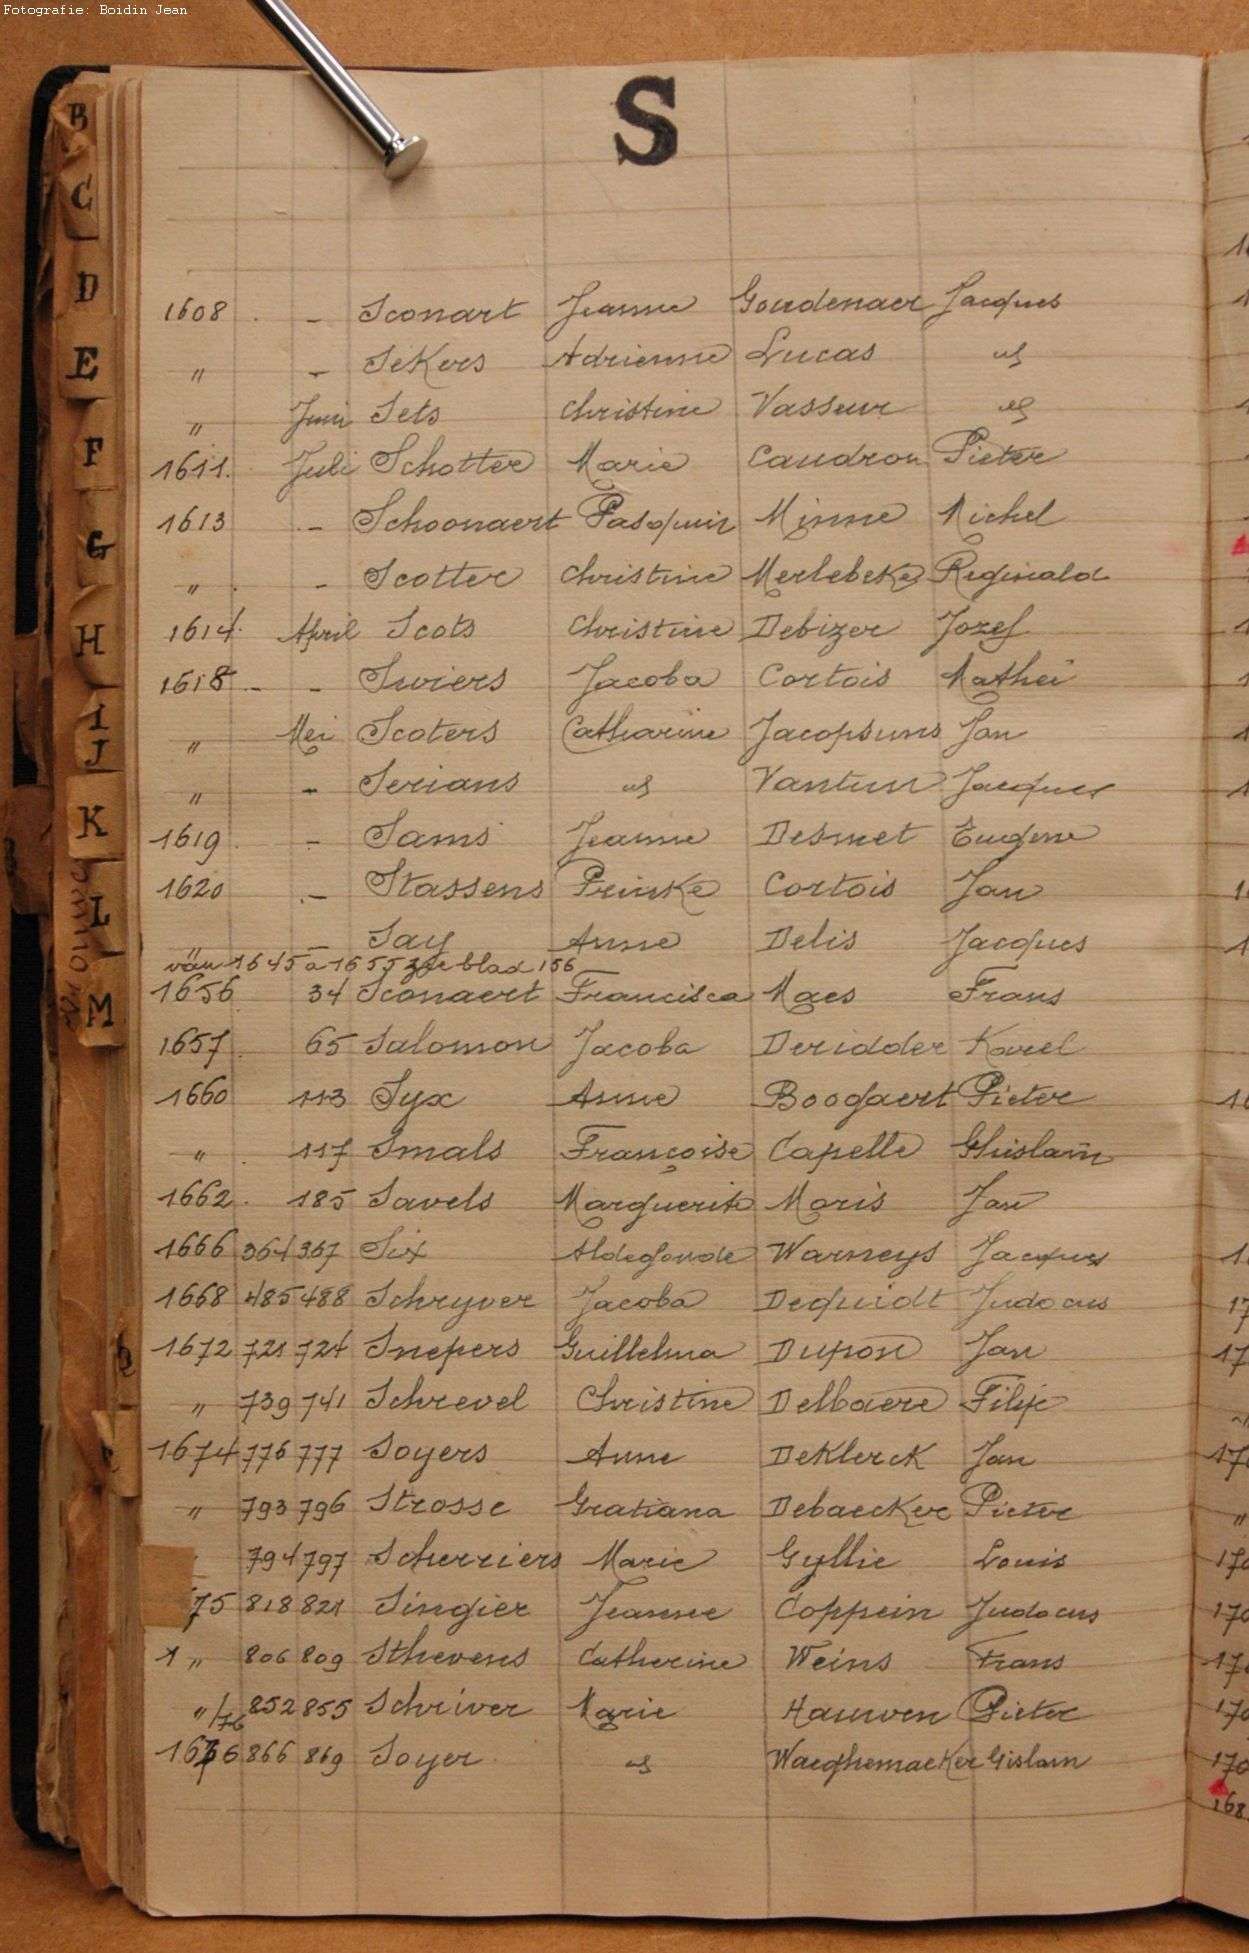 Fotografie: Boidin Jean
S
B
C
D
E
F
G
H
I
J
K
L
M
1608 . - Sconart Jeanne Goudenaer Jacques
" - Sekers Adrienne Lucas id
" Juni Sets Christine Vasseur id
1611. Juli Schotter Marie Caudron Pieter
1613 - Schoonaert Pasquin Minne Michel
" . - Scotter Christine Merlebeke Reginald
1614. April Scots Christine Debizer Jozef
1618 - - Swiers Jacoba Cortois Mathei
" Mei Scoters Catharine Jacopsuns Jan
" - Serians id Vantun Jacques
1619 . - Sams Jeanne Desmet Eugene
1620 .- Stassens Prinske Cortois Jan
" - Say Anne Delis Jacques
van 1645 a 1655 zie blad 156
1656 34 Sconaert Francisca Maes Frans
1657. 65 Salomon Jacoba Deridder Karel
1660 113 Syx Anne Boogaert Pieter
" . 117 Smals Françoise Capelle Ghislain
1662. 185 Savels Marguerite Maris Jan
1666 364 367 Six Aldegonde Warneys Jacques
1668 485 488 Schryver Jacoba Dequidt Judocus
1672 721 724 Snepers Guillelma Dupon Jan
" 739 741 Schrevel Christine Delbaere Filip
1674 776 777 Soyers Anne DeKlerck Jan
" 793 796 Strosse Gratiana Debaecker Pieter
794 797 Scherriers Marie Gyllie Louis
75 818 821 Singier Jeanne Coppein Judocus
1 " 806 809 Sthevens Catherine Weins Frans
"/76 852 855 Schriver Marie Hauwen Pieter
1676 866 869 Soyer id Waeghemaeker Gislain